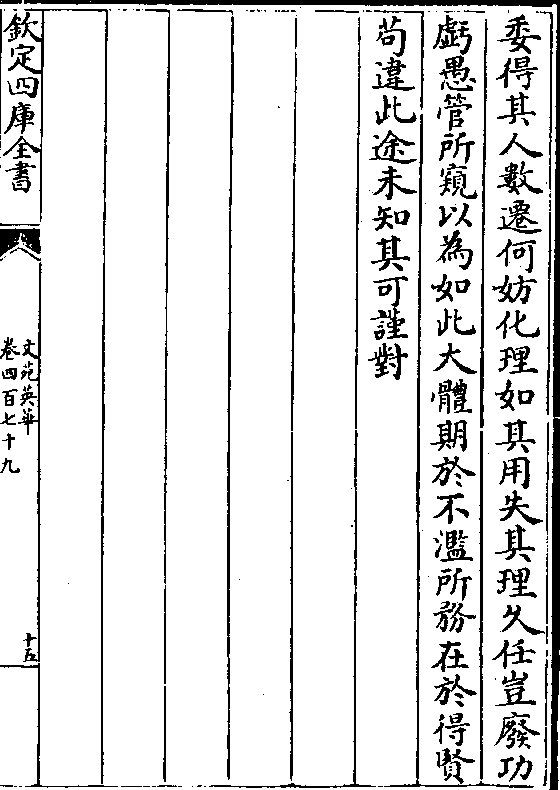 委得其人數遷何妨化理如其用失其理久任豈廢功
虧愚管所窺以為如此大體期於不濫所務在於得賢
茍違此途未知其可謹對
欽定四庫全書
文苑英華
卷四百七十九
十五